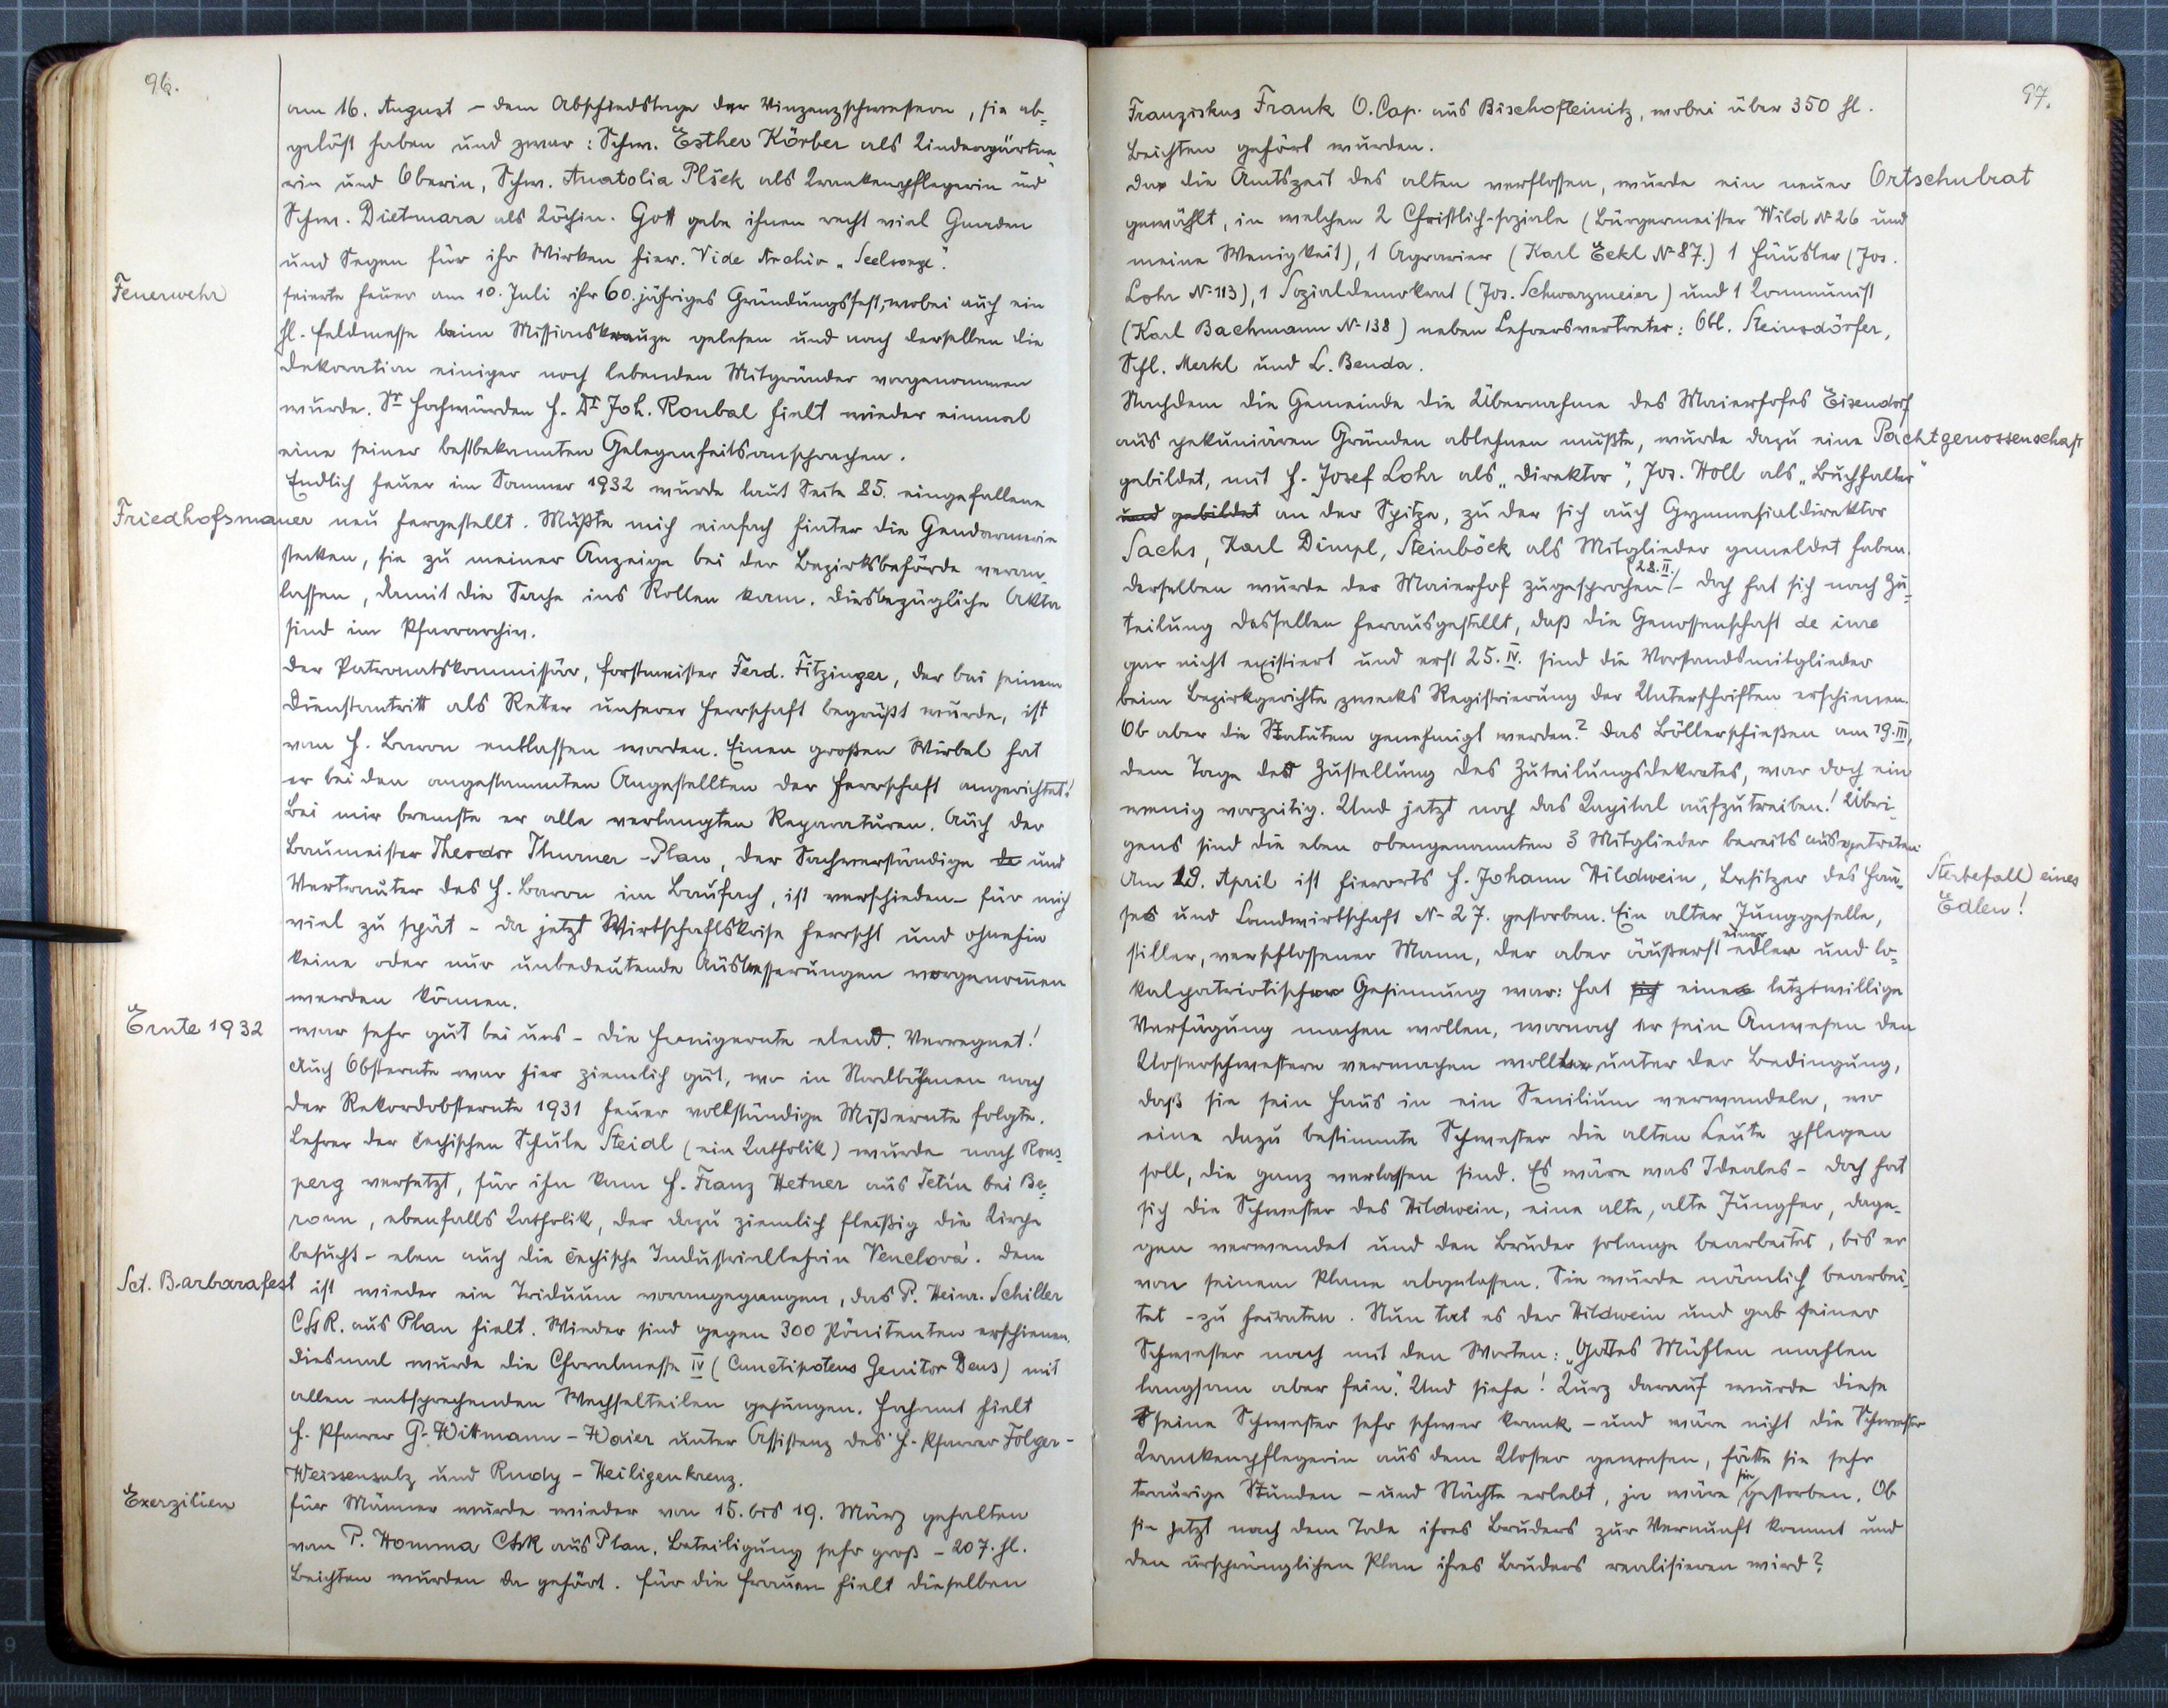 96.
am 16. August – dem Abschiedstage der Vinzenzschwestern, sie ab-
gelöst haben und zwar: Schw. Esther Körber als Kindergärtne-
rin und Oberin, Schw. Anatolia Plšek als Krankenpflegerin und
Schw. Dietmara als Köchin. Gott gebe ihnen recht viel Gnaden
und Segen für ihr Wirken hier. Vide Archiv „Seelsorge".
Feuerwehr feierte heuer am 10. Juli ihr 60. jähriges Gründungsfest, wobei auch ein
hl. Feldmesse beim Missionskreuze gelesen und nach derselben die
Dekoration einiger noch lebenden Mitgründer vorgenommen
wurde. Sr Hochwürden H. Dr Joh. Roubal hielt wieder einmal
eine seiner bestbekannten Gelegenheitsansprachen.
Endlich heuer im Sommer 1932 wurde laut Seite 85. eingefallene
Friedhofsmauer neu hergestellt. Mußte mich einfach hinter die Gendarmerie
stecken, sie zu meiner Anzeige bei der Bezirksbehörde veran-
lassen, damit die Sache ins Rollen kam. Diesbezügliche Akten
sind im Pfarrarchiv.
Der Patronatskommissär, Forstmeister Ferd. Fitzinger, der bei seinem
Dienstantritt als Retter unserer Herrschaft begrüßt wurde, ist
vom H. Baron entlassen worden. Einen großen Wirbel hat
er bei den angestammten Angestellten der Herrschaft angerichtet!
Bei mir bremste er alle verlangten Reparaturen. Auch der
Baumeister Theodor Thurner-Plan, der Sachverständige de und
Vertrauter des H. Baron im Baufach, ist verschieden – für mich
viel zu spät – da jetzt Wirtschaftskrise herrscht und ohnehin
keine oder nur unbedeutende Ausbesserungen vorgenom̄en
werden können.
Ernte 1932 war sehr gut bei uns – die Honigernte elend. Verregnet!
Auch Obsternte war hier ziemlich gut, wo in Nordböhmen nach
der Rekordobsternte 1931 heuer vollständige Mißernte folgte.
Lehrer der čechischen Schule Steidl (ein Katholik) wurde nach Rons-
perg versetzt, für ihn kam H. Franz Hetner aus Tetín bei Be-
roun, ebenfalls Katholik, der dazu ziemlich fleißig die Kirche
besucht – eben auch die čechische Industriallehrin Venclová. Dem
Sct. Barbarafest ist wieder ein Triduum vorangegangen, das P. Heinr. Schiller
CSsR. aus Plan hielt. Wieder sind gegen 300 Pönitenten erschienen.
Diesmal wurde die Choralmesse IV (Cunctipotens Genitor Deus) mit
allen entsprechenden Wechselteilen gesungen. Hochamt hielt
H. Pfarrer G. Wittmann-Waier unter Assistenz des H. Pfarrer Folger-
Weissensulz und Rudy-Heiligenkreuz.
Exerzitien für Männer wurde wieder von 15. bis 19. März gehalten
von P. Homma CSsR aus Plan. Beteiligung sehr groß – 207. hl.
Beichten wurden da gehört. Für die Frauen hielt dieselben
97.
Franziskus Frank O. Cap. aus Bischofteinitz, wobei über 350 hl.
Beichten gehört wurden.
Da die Amtszeit des alten verflossen, wurde ein neuer Ortschulrat
gewählt, in welchen 2 Christlich-soziale (Bürgermeister Wild N-26 und
meine Wenigkeit), 1 Agrarier (Karl Eckl N-87.) 1 Häusler (Jos.
Lohr N-113), 1 Sozialdemokrat (Jos. Schwarzmeier) und 1 Kommunist
(Karl Bachmann N-138) neben Lehrervertreter: Obl. Steinsdörfer,
Schl. Merkl und L. Benda.
Nachdem die Gemeinde die Übernahme des Maierhofes Eisendorf
aus pekuniären Gründen ablehnen mußte, wurde dazu eine Pachtgenossenschaft
gebildet, mit H. Josef Lohr als „Direktor", Jos. Holl als „Buchhalter"
und gebildet an der Spitze, zu der sich auch Gymnasialdirektor
Sachs, Karl Dimpl, Steinböck als Mitglieder gemeldet haben.
Derselben wurde der Maierhof zugesprochen (28.II.) – doch hat sich nach Zu-
teilung desselben herausgestellt, daß die Genossenschaft de iure
gar nicht existiert und erst 25. IV. sind die Vorstandsmitglieder
beim Bezirkgerichte zwecks Registrierung der Unterschriften erschienen.
Ob aber die Statuten genehmigt werden? Das Böllerschießen am 19. III,
dem Tage der Zustellung des Zuteilungsdekretes, war doch ein
wenig vorzeitig. Und jetzt noch das Kapital aufzutreiben! Übri-
gens sind die eben obengenannten 3 Mitglieder bereits ausgetreten.
Sterbefall eines
Edlen!
Am 19. April ist hierorts H. Johann Wildwein, Besitzer des Hau-
ses und Landwirtschaft N-27. gestorben. Ein alter Junggeselle,
stiller, verschlossener Mann, der aber äußerst einer edlen und lo-
kalpatriotischen Gesinnung war: hat sich eine letztwillige
Verfügung machen wollen, wonach er sein Anwesen den
Klosterschwestern vermachen wollte unter der Bedingung,
daß sie sein Haus in ein Senilium verwandeln, wo
eine dazu bestimmte Schwester die alten Leute pflegen
soll, die ganz verlassen sind. Es wäre was Ideales – doch hat
sich die Schwester des Wildwein, eine alte, alte Jungfer, dage-
gen verwendet und den Bruder solange bearbeitet, bis er
von seinem Plane abgelassen. Sie wurde nämlich bearbei-
tet – zu heiraten. Nun tat es der Wildwein und gab seiner
Schwester nach mit den Worten: „Gottes Mühlen mahlen
langsam aber fein." Und siehe! Kurz darauf wurde diese
seine Schwester sehr schwer krank – und wäre nicht die Schwester
Krankenpflegerin aus dem Kloster gewesen, hätte sie sehr
traurige Stunden – und Nächte erlebt, ja wäre sie gestorben. Ob
sie jetzt nach dem Tode ihres Bruders zur Vernunft kommt und
den ursprünglichen Plan ihres Bruders realisieren wird?